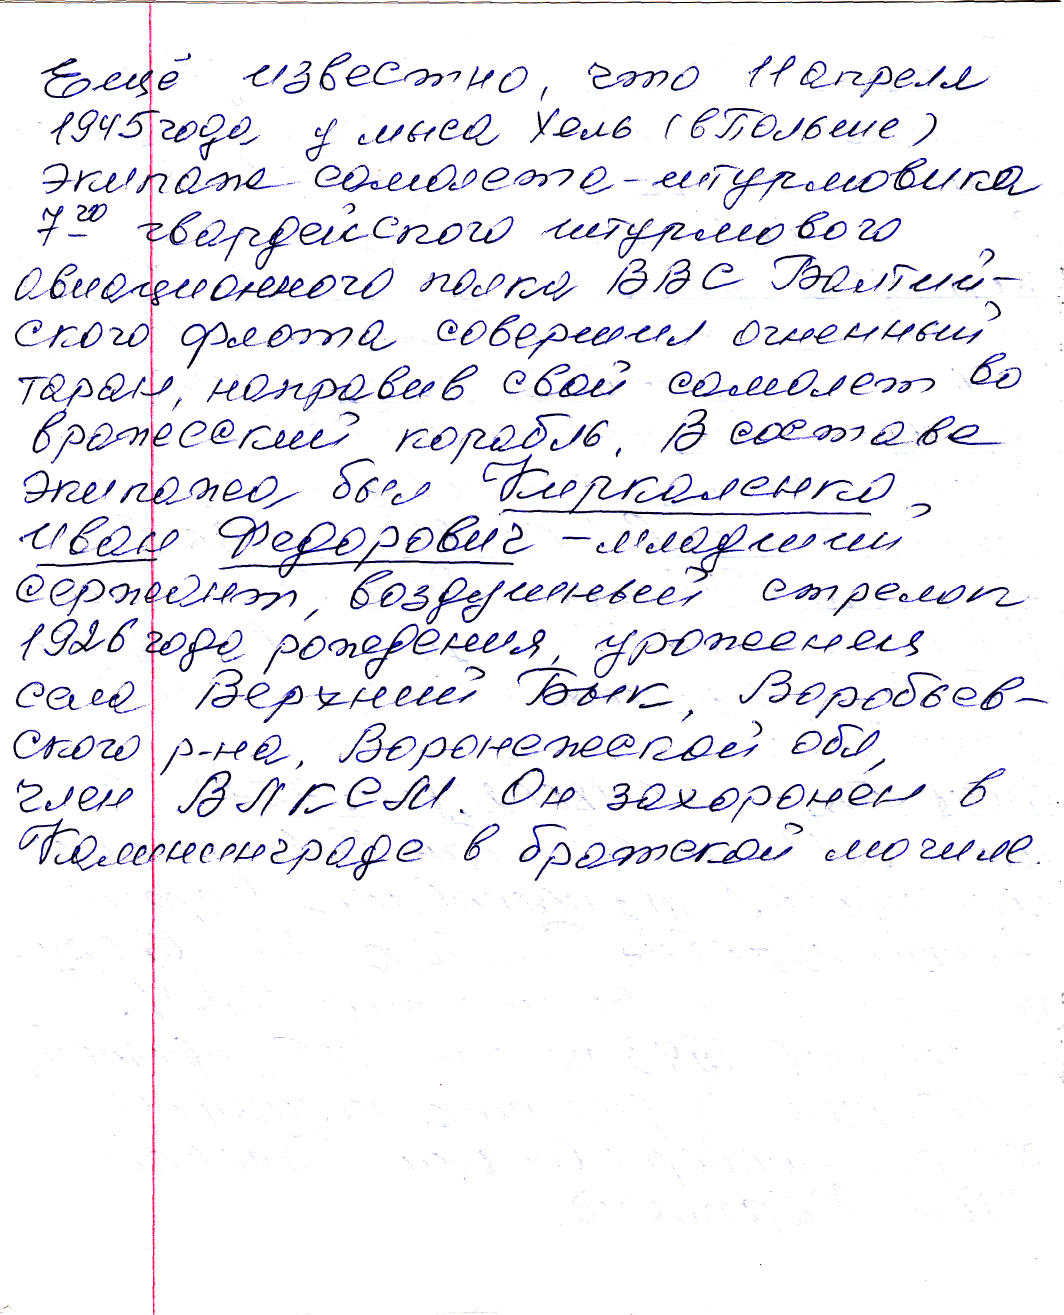 Ещё известно, что 11 апреля
1945 года у мыса Хель (в Польше)
экипаж самолета-штурмовика
7го гвардейского штурмового
авиационного полка ВВС Балтий-
ского флота совершил огненный
таран, направив свой самолет во
вражесский корабль. В составе
экипажа был Киркаленко
Иван Федорович - младший
сержант, воздушный стрелок
1926 года рождения, уроженец
села Верхний Бык, Воробьев-
ского р-на, Воронежской обл,
член ВЛКСМ. Он захоронен в
Калининграде в братской могиле.